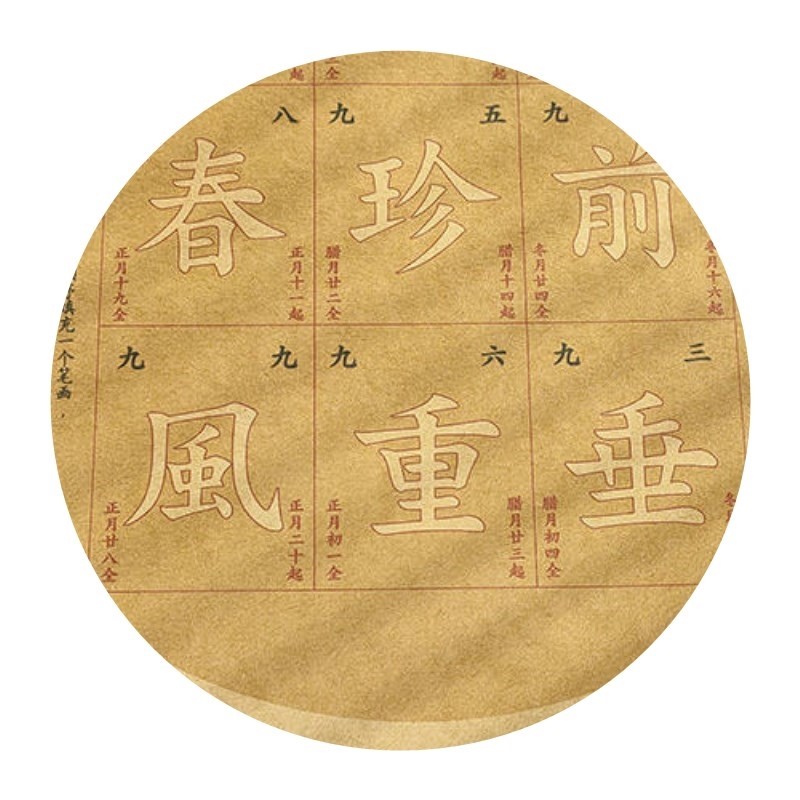 起
全
起
九
前
冬月十六起
冬月廿四全
三九
垂
腊月初四全
五九
珍
腊月十四起
腊月廿二全
六九
重
腊月廿三起
正月初一全
八九
春
正月十一起
正月十九全
九九
風
正月二十起
正月廿八全
填充一个笔画，